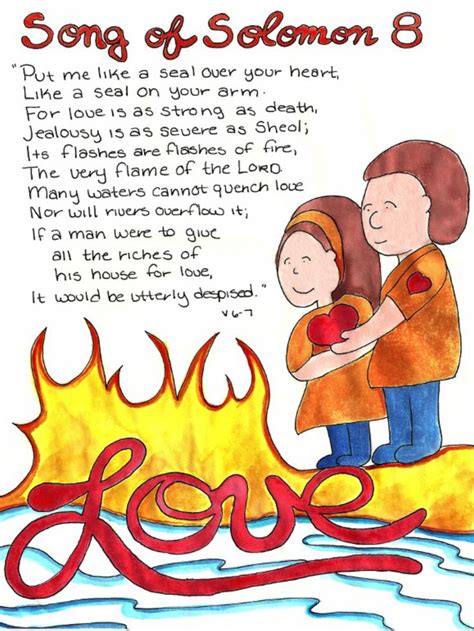 Song of Solomon 8
"Put me like a seal over your heart,
Like a seal on your arm.
For love is as strong as death,
Jealousy is as severe as Sheol;
Its flashes are flashes of fire,
The very flame of the LORD
Many waters cannot quench love
Nor will rivers overflow it;
If a man were to give
all the riches of
his house for love,
It would be utterly despised."
v 6-7
Love